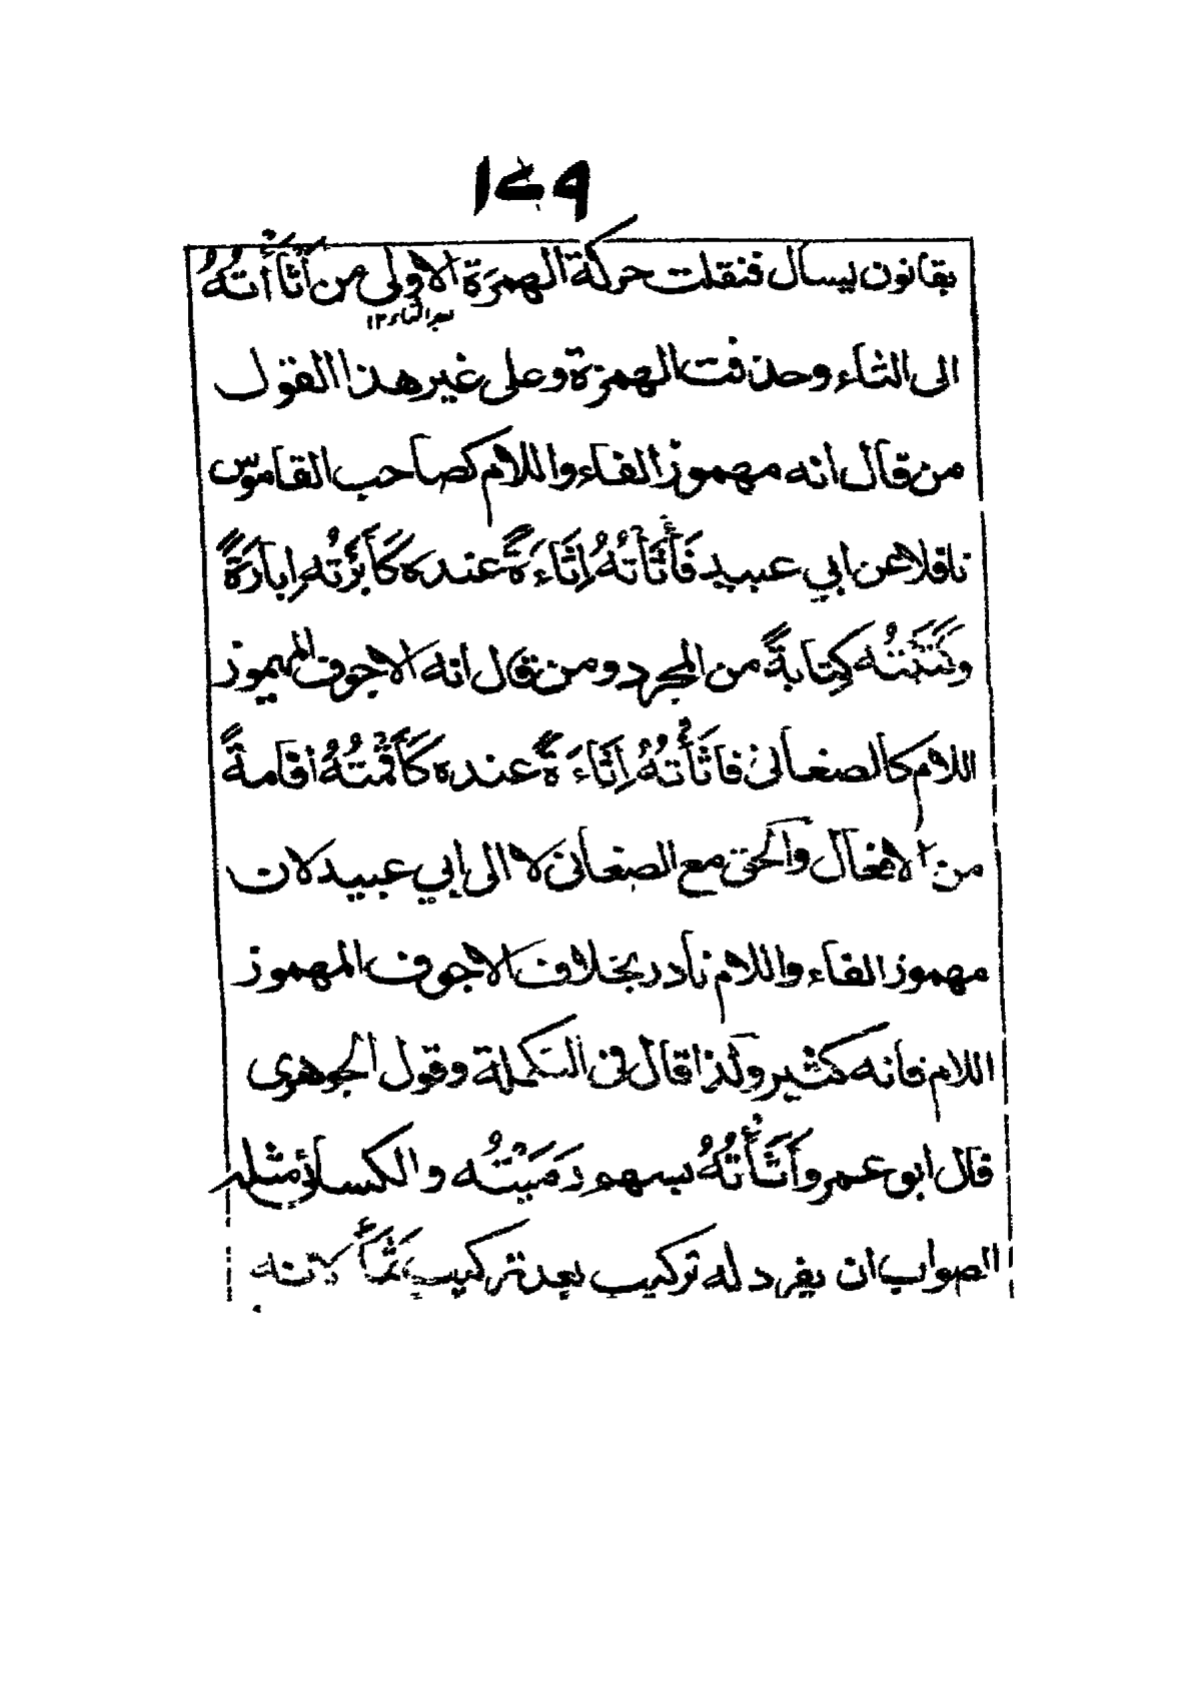 ١٤٩
بقانون يسال فنقلت حركة الهمزة الاولى من أَثَأْأَتُهُ
بعد الثاء ١٢
الى الثاء وحذفت الهمزة وعلى غير هذا القول
من قال انه مهموز الفاء واللام كصاحب القاموس
ناقلا عن ابي عبيد فَأَثَأْتُهُ إِثَاءَةً عنده كَأَبَرْتُه إِبارَةً
وكَتَبْتُه كِتابةً من المجرد ومن قال انه الاجوف المهموز
اللام كالصغاني فاثَأْتُهُ إِثَاءَةً عنده كَأَقَمْتُهُ اقامةً
من الافعال والحق مع الصغاني لا الى ابي عبيد لان
مهموز الفاء واللام نادر بخلاف الاجوف المهموز
اللام فانه كثير ولذا قال في التكملة وقول الجوهرى
قال ابو عمرو أَثَأْتُهُ بسهم رَمَيْتُه والكسائي مثله
الصواب ان يفرد له تركيب بعد تركيب ثَمَأَ